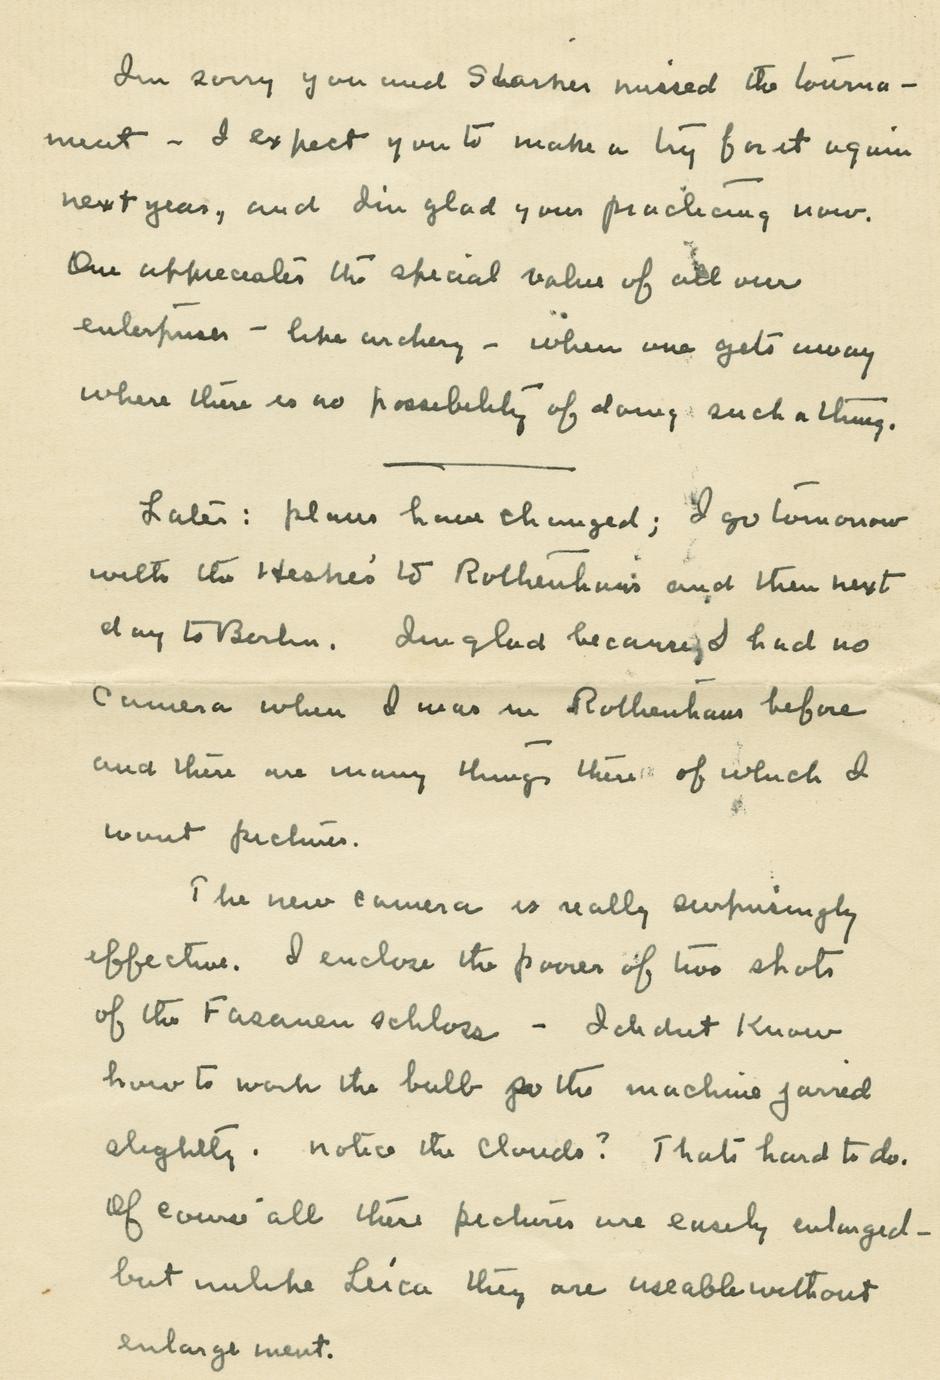 I'm sorry you and Starker missed the tourna-
ment - I expect you to make a try for it again
next year, and I'm glad your practicing now.
One appreciates the special value of all our
enterprises - like archery - when one gets away
where there is no possibility of doing such a thing.
Later: plans have changed; I go tomorrow
with the Heske's to Rothenhaus and then next
day to Berlin. I'm glad because, I had no
camera when I was in Rothenhaus before
and there are many things there of which I
want pictures.
The new camera is really surprisingly
effective. I enclose the poorer of two shots
of the Fasanen schloss - I didnt know
how to work the bulb so the machine jarred
slightly. notice the clouds? Thats hard to do.
Of course all these pictures are easily enlarged -
but unlike Leica they are useable without
enlargement.